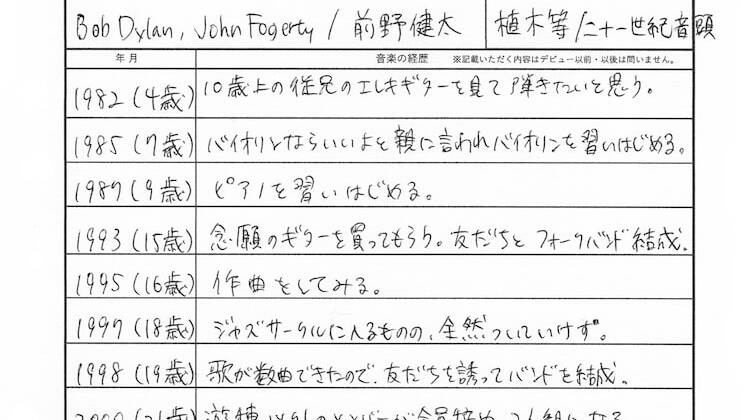 Bob Dylan, John Fogerty / 前野健太 植木等/二十一世紀音頭
年月 音楽の経歴 ※記載いただく内容はデビュー以前・以後は問いません。
1982(4歳) 10歳上の従兄のエレキギターを見て弾きたいと思う。
1985(7歳) バイオリンならいいよと親に言われバイオリンを習いはじめる。
1987(9歳) ピアノを習いはじめる。
1993(15歳) 念願のギターを買ってもらう。友だちとフォークバンド結成。
1995(16歳) 作曲をしてみる。
1997(18歳) ジャズサークルに入るものの、全然ついていけず。
1998(19歳) 歌が数曲できたので、友だちを誘ってバンドを結成。
2000(21歳)